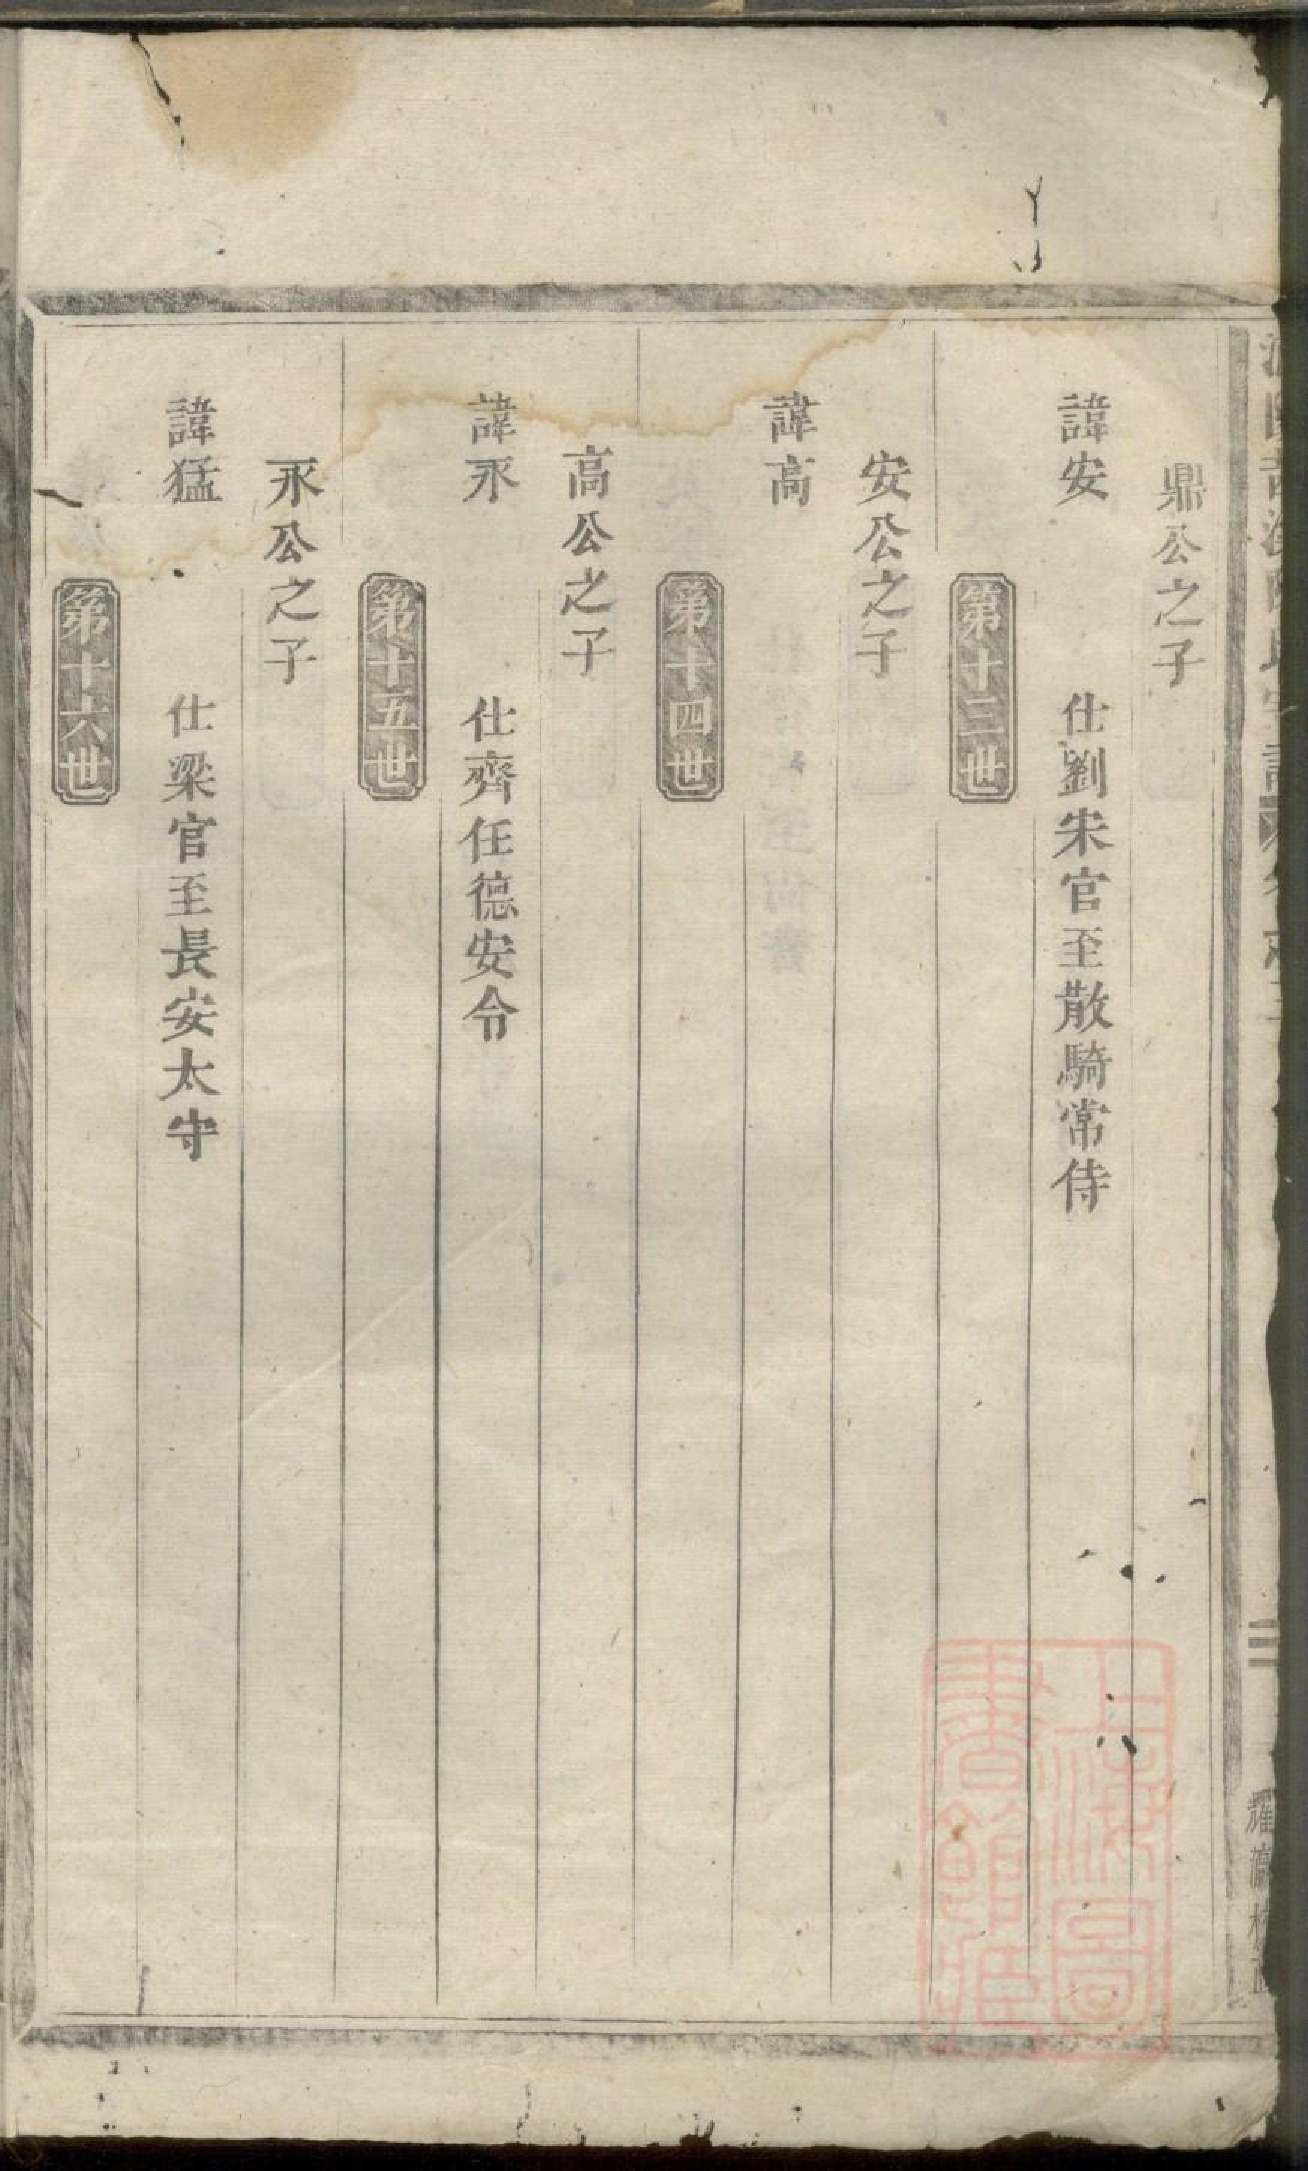 鼎公之子
諱安　仕劉宋官至散騎常侍
第十三世
安公之子
諱高
第十四世
高公之子
諱永　仕齊任德安令
第十五世
永公之子
諱猛　仕梁官至長安太守
第十六世
上海圖
書館藏